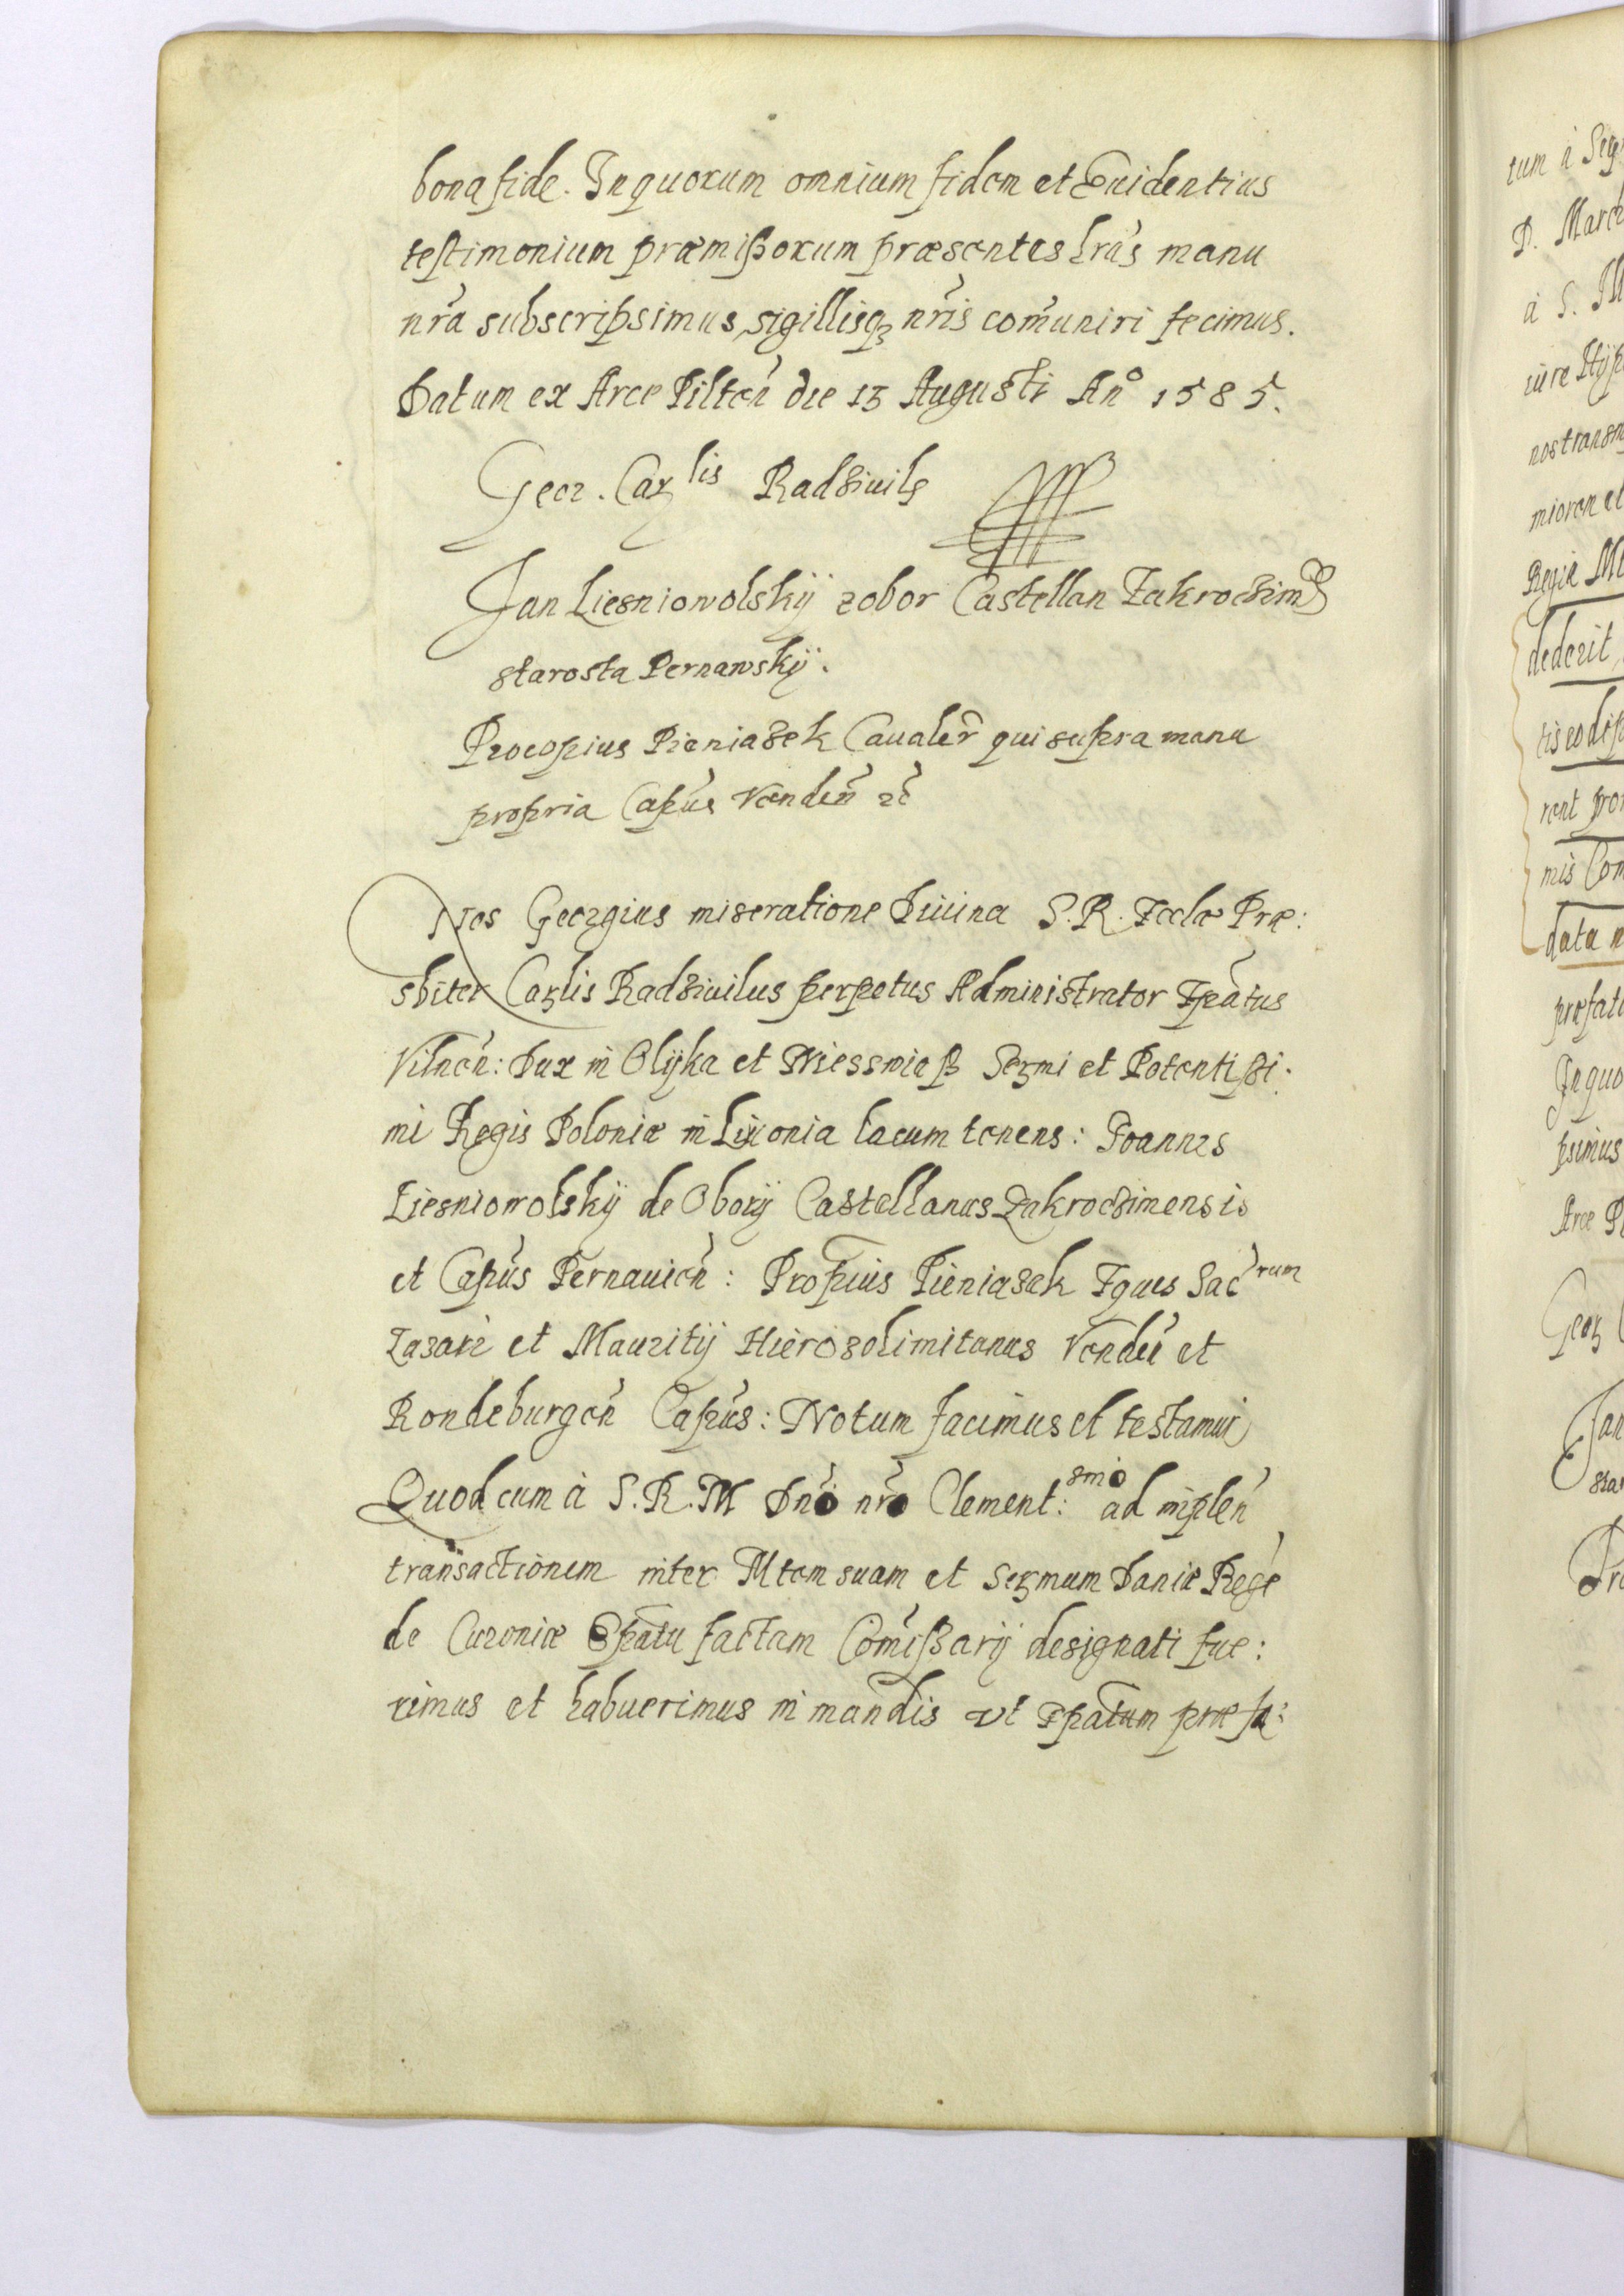 bona fide. In quorum omnium fidem et Euidentius
testimonium præmißorum præsentes lrãs manu
nrã subscripsimus, sigillisqꝫ nrĩs comũniri fecimus.
Datum ex Arce Pilteñ die 15 Augusti Anº 1585.
Geor. Carlis Radziuilꝭ
Jan Liesniowolskÿ zobor Castellan Zakroczimꝭ
starosta Pernawskÿ.
Procopius Pieniazek Caualer̃ qui supra manu
propria Capũs Vendeñ ꝛc̃
Nos Georgius miseratione Diuina S. R. Eclæ Præ:
sbiter Carlis Radziuilus perpetus Administrator Epãtus
Vilneñ: Dux in Olÿka et Niesswieß Sermi et Potentißi:
mi Regis Poloniæ in Liuonia locum tenens: Joannes
Liesniowolskÿ de Oborÿ Castellanus Zakroczimensis
et Capũs Pernauieñ: Propius Pieniazek Eques Sac̃rum
Lazari et Mauritÿ Hierosolimitanus Vendeñ et
Rondeburgeñ Capũs: Notum facimus et testamur
Quod cum à S. R. M Dnõ nrõ Clement:smo ad impleñ
transactionem inter Mtem suam et Sermum Daniæ Regẽ
de Curoniæ Epãtu factam Com̃ißarÿ designati fue:
rimus et habuerimus in mandis vt Epãtum præfa:
tum à Sig
P. March
à S.
iure Hÿp
nos transm
mioren et
Regiæ M
dederit
tis eodip
rent pro
mis Com
data n
præfat
In quo
psimus
Arce P
Geor
Jan
star
Pro